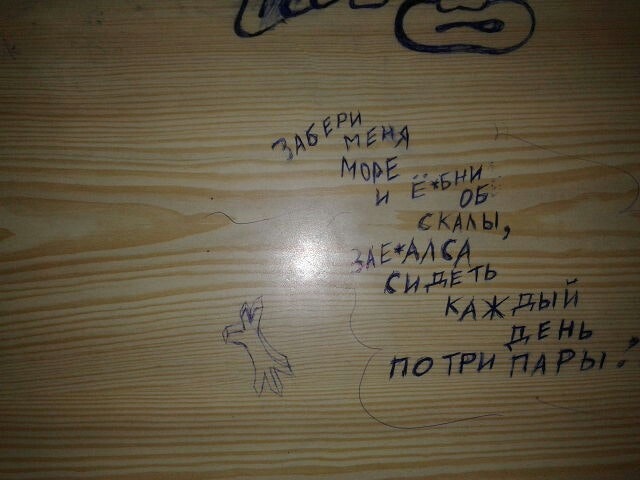 ЗАБЕРИ
МЕНЯ
МОРЕ
И Ё*БНИ
ОБ
СКАЛЫ,
ЗАЕ*АЛСА
СИДЕТЬ
КАЖДЫЙ
ДЕНЬ
ПО ТРИ ПАРЫ.